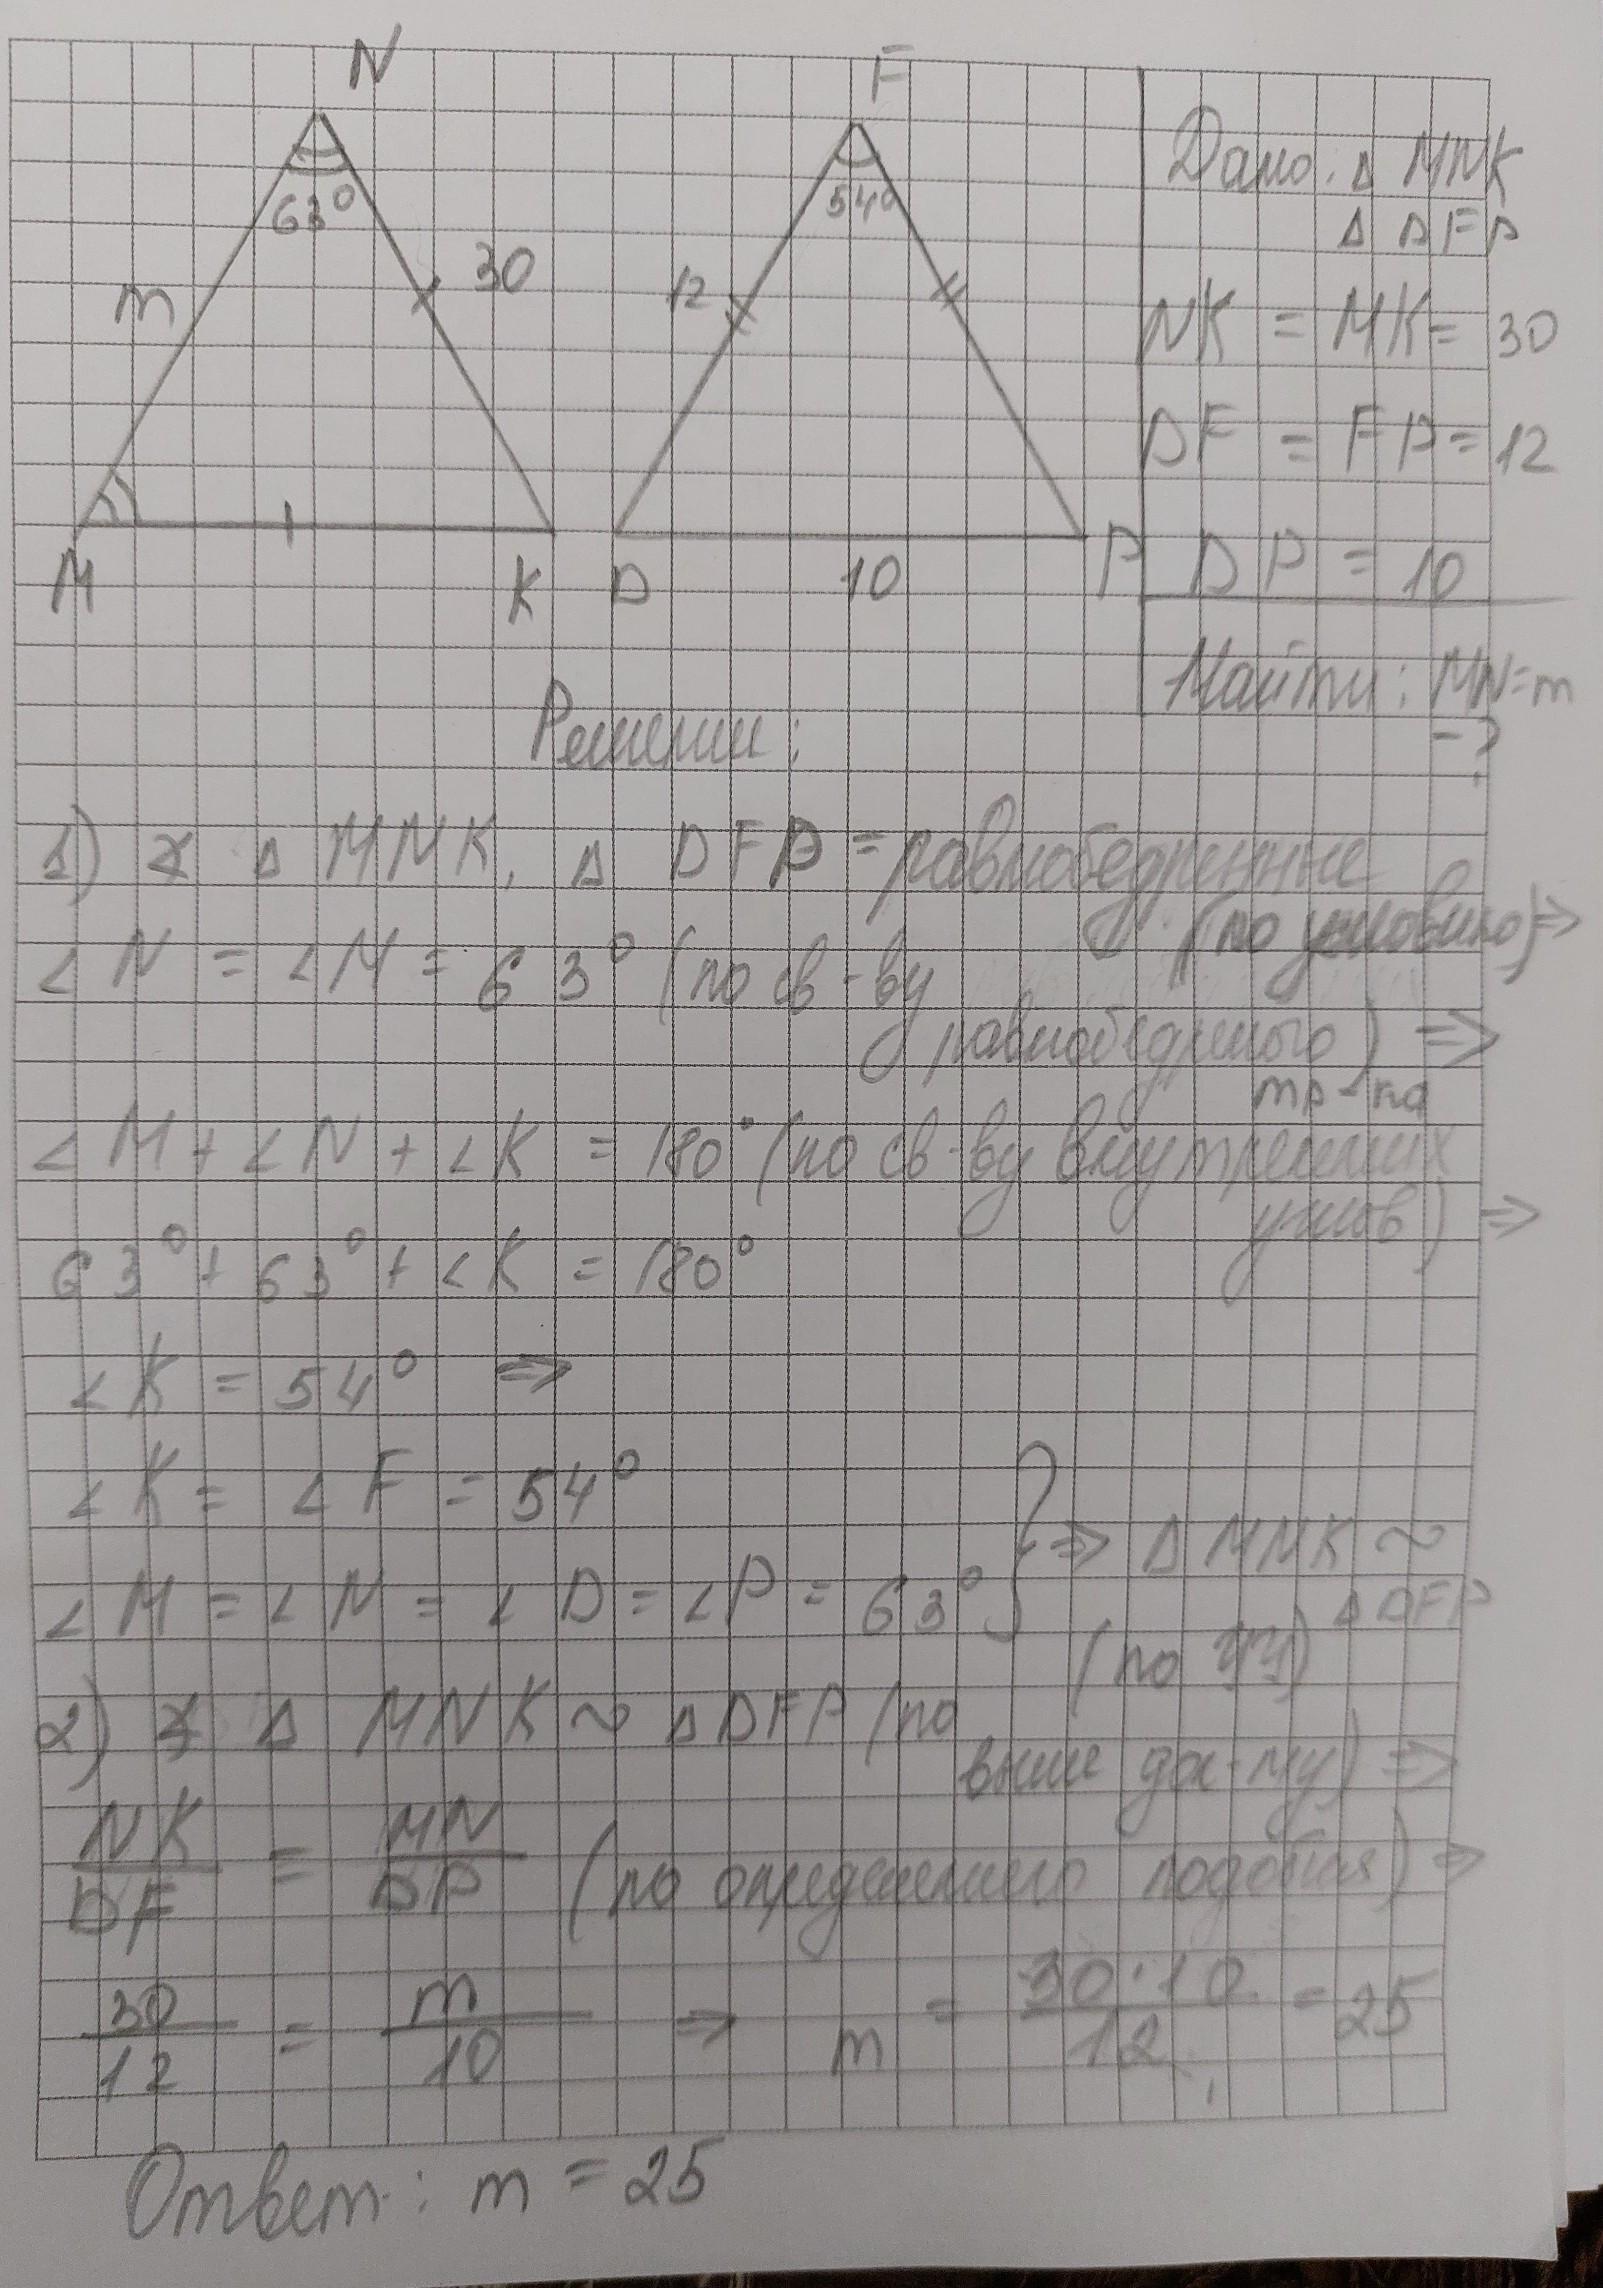 N
F
63°
54°
m
30
12
M
K
D
10
P
Дано: Δ MNK
Δ DFP
NK = MK = 30
DF = FP = 12
DP = 10
Найти: MN = m
- ?
Решении:
1) ∡ Δ MNK, Δ DFP = равнобедренные
(по условию) ⇒
∠ N = ∠ M = 63° (по св-ву
равнобедреного) ⇒
тр-ка
∠ M + ∠ N + ∠ K = 180° (по св-ву внутренних
углов) ⇒
63° + 63° + ∠ K = 180°
∠ K = 54° ⇒
∠ K = ∠ F = 54°
∠ M = ∠ N = ∠ D = ∠ P = 63° } ⇒ Δ MNK ~
Δ DFP
(по УУ)
2) ∡ Δ MNK ~ Δ DFP (по
выше до-му) ⇒
NK/DF = MN/DP (по определению подобия) ⇒
30/12 = m/10 ⇒ m = 30·10/12 = 25
Ответ: m = 25